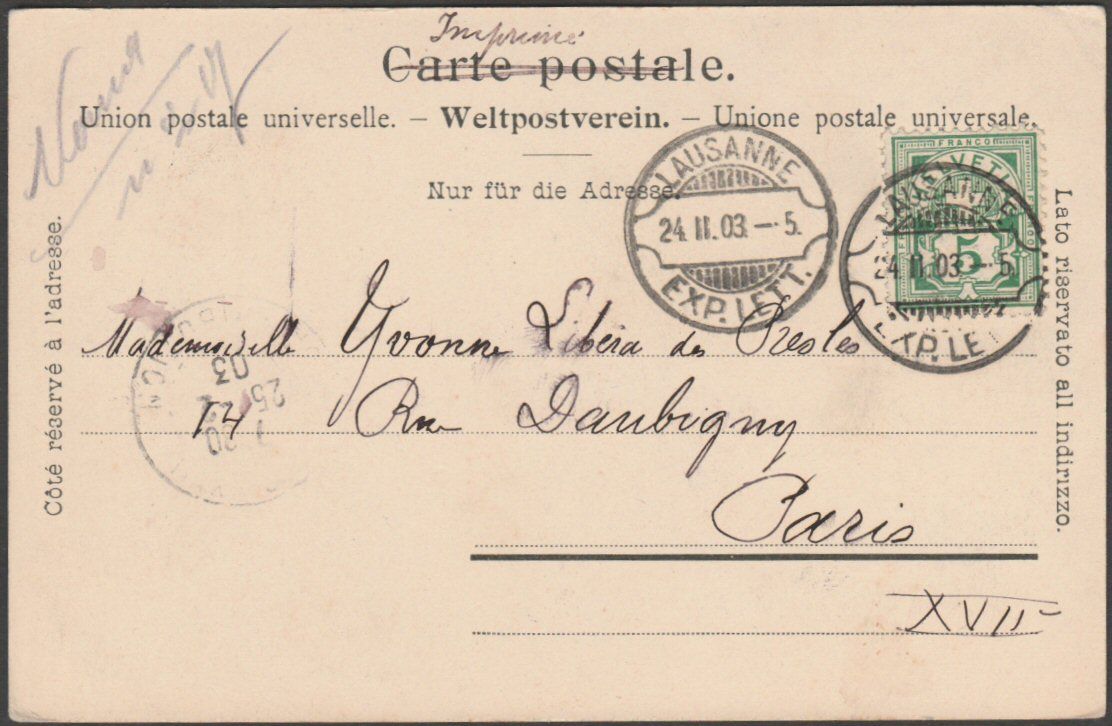 Imprimé
Carte postale.
Union postale universelle. – Weltpostverein. – Unione postale universale.
Nur für die Adresse.
LAUSANNE
24. II. 03. – 5.
EXP. LETT.
FRANCO
HELVETIA
5
LAUSANNE
24. II. 03. – 5.
EXP. LETT.
Côté réservé à l'adresse.
Lato riservato all indirizzo.
Mademoiselle Yvonne Libéra des Presles
14 Rue Daubigny
Paris
XVII
25
03